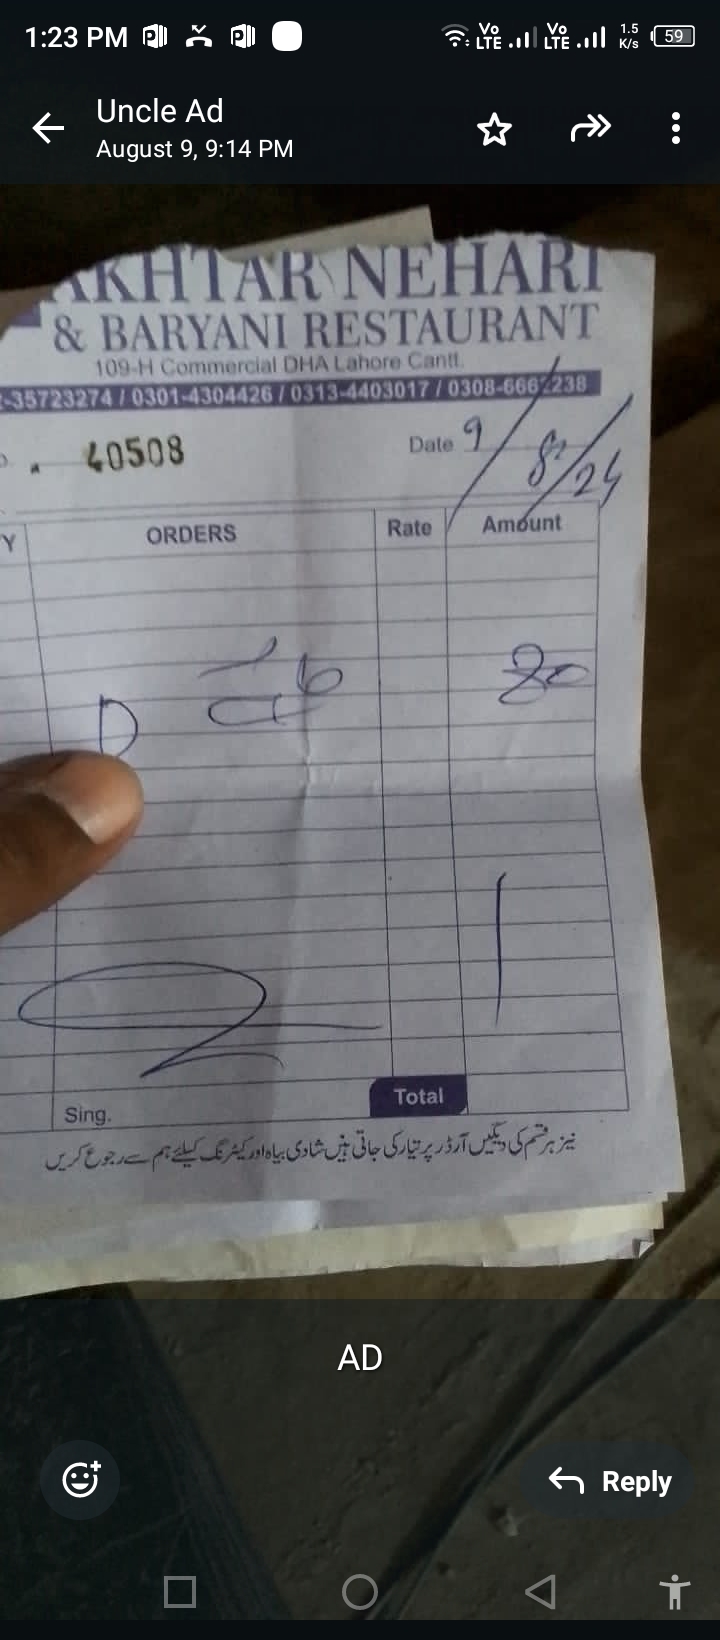 1:23 PM Vo LTE Vo LTE 1.5 K/s 59
Uncle Ad
August 9, 9:14 PM
AKHTAR NEHARI
& BARYANI RESTAURANT
109-H Commercial DHA Lahore Cantt.
-35723274 / 0301-4304426 / 0313-4403017 / 0308-666 238
40508 Date 9/8/24
Y ORDERS Rate Amount
D
Total
Sing.
نیز ہر قسم کی دیگیں آرڈر پر تیار کی جاتی ہیں شادی بیاہ اور کیٹرنگ کیلئے ہم سے رجوع کریں
AD
Reply